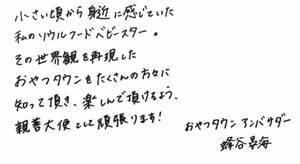 小さい頃から身近に感じていた
私のソウルフードベビースター。
その世界観を再現した
おやつタウンをたくさんの方々に
知って頂き、楽しんで頂けるよう、
親善大使として頑張ります!
おやつタウンアンバサダー
蜂谷晏海